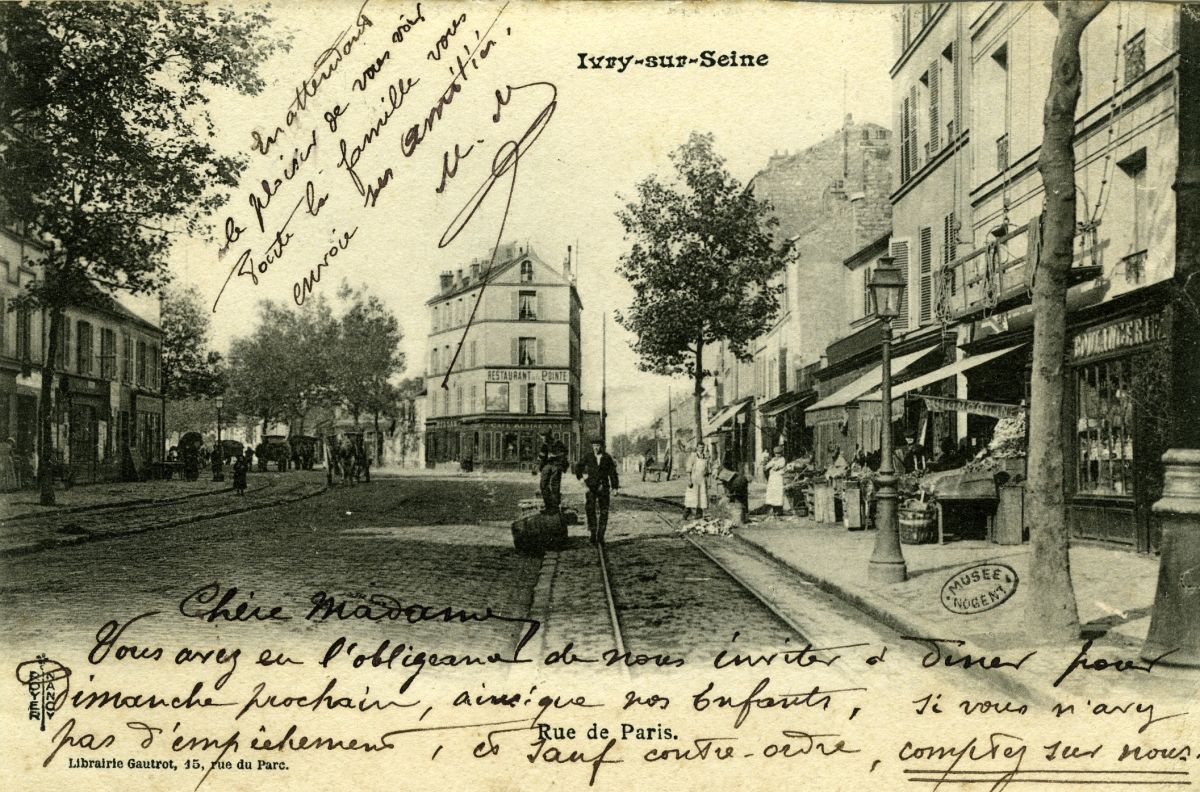 Ivry-sur-Seine
En attendant
le plaisir de vous voir
Toute la famille vous
envoie ses amitiés.
M. M
RESTAURANT POINTE
CAFE RESTAURANT
BOULANGERIE
MUSEE
NOGENT
Chère Madame
Vous avez eu l'obligeance de nous inviter à diner pour
dimanche prochain, ainsi que nos Enfants, si vous n'avez
pas d'empêchement, et sauf contre-ordre, comptez sur nous.
Rue de Paris.
ROYER
NANCY
Librairie Gautrot, 15, rue du Parc.